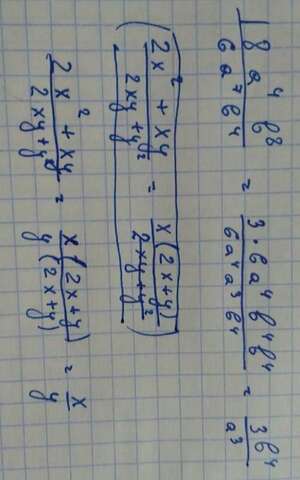 18 a⁴ b⁸ / 6 a⁷ b⁴ = 3 · 6 a⁴ b⁴ b⁴ / 6 a⁴ a³ b⁴ = 3 b⁴ / a³
(2x² + xy / 2xy + y² = x(2x + y) / 2xy + y²)
2x² + xy / 2xy + y² = x(2x + y) / y(2x + y) = x / y